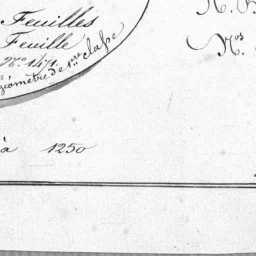 Feuilles
Feuille
N.º 1471.
géomètre de 1.ère classe
N.os
à 1250